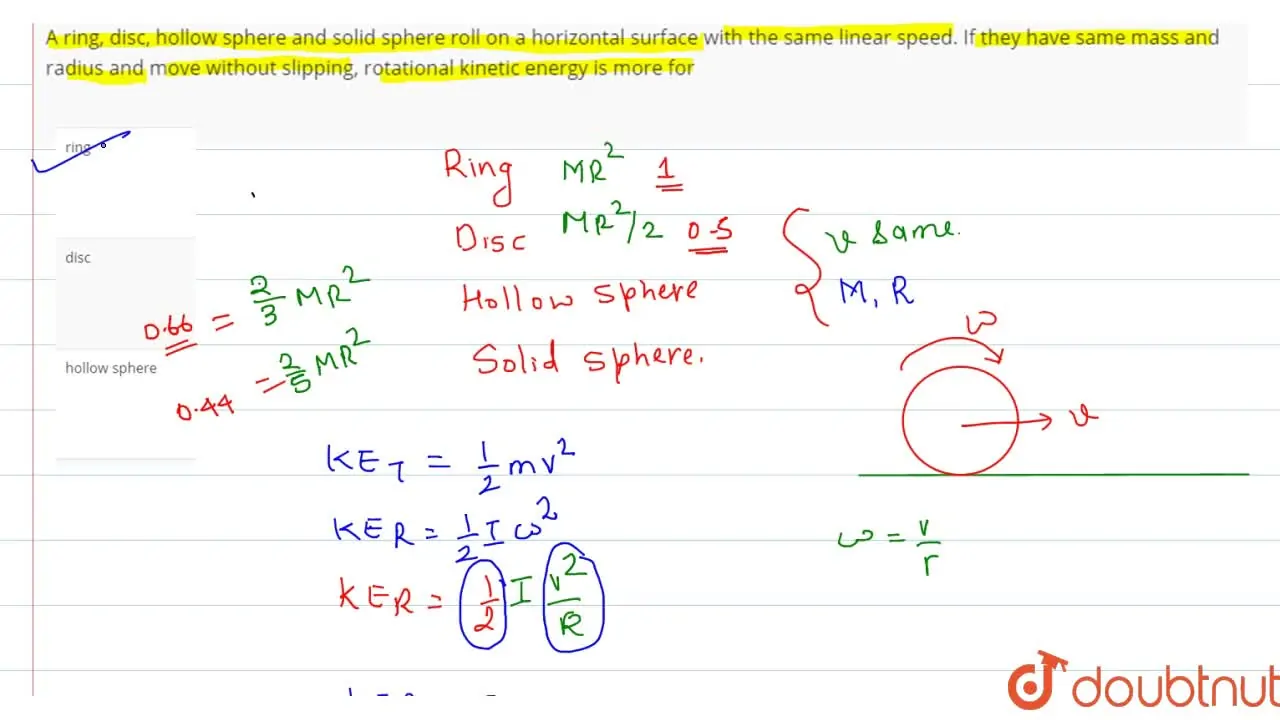 A ring, disc, hollow sphere and solid sphere roll on a horizontal surface with the same linear speed. If they have same mass and
radius and move without slipping, rotational kinetic energy is more for
ring
Ring MR² 1
Disc MR²/2 0.5
v same.
disc
2/3 MR²
Hollow sphere
M, R
0.66 =
ω
Solid sphere.
hollow sphere
0.44 = 2/5 MR²
v
KE_T = 1/2 mv²
KE_R = 1/2 I ω²
ω = v/r
KE_R = 1/2 I v²/R
doubtnut